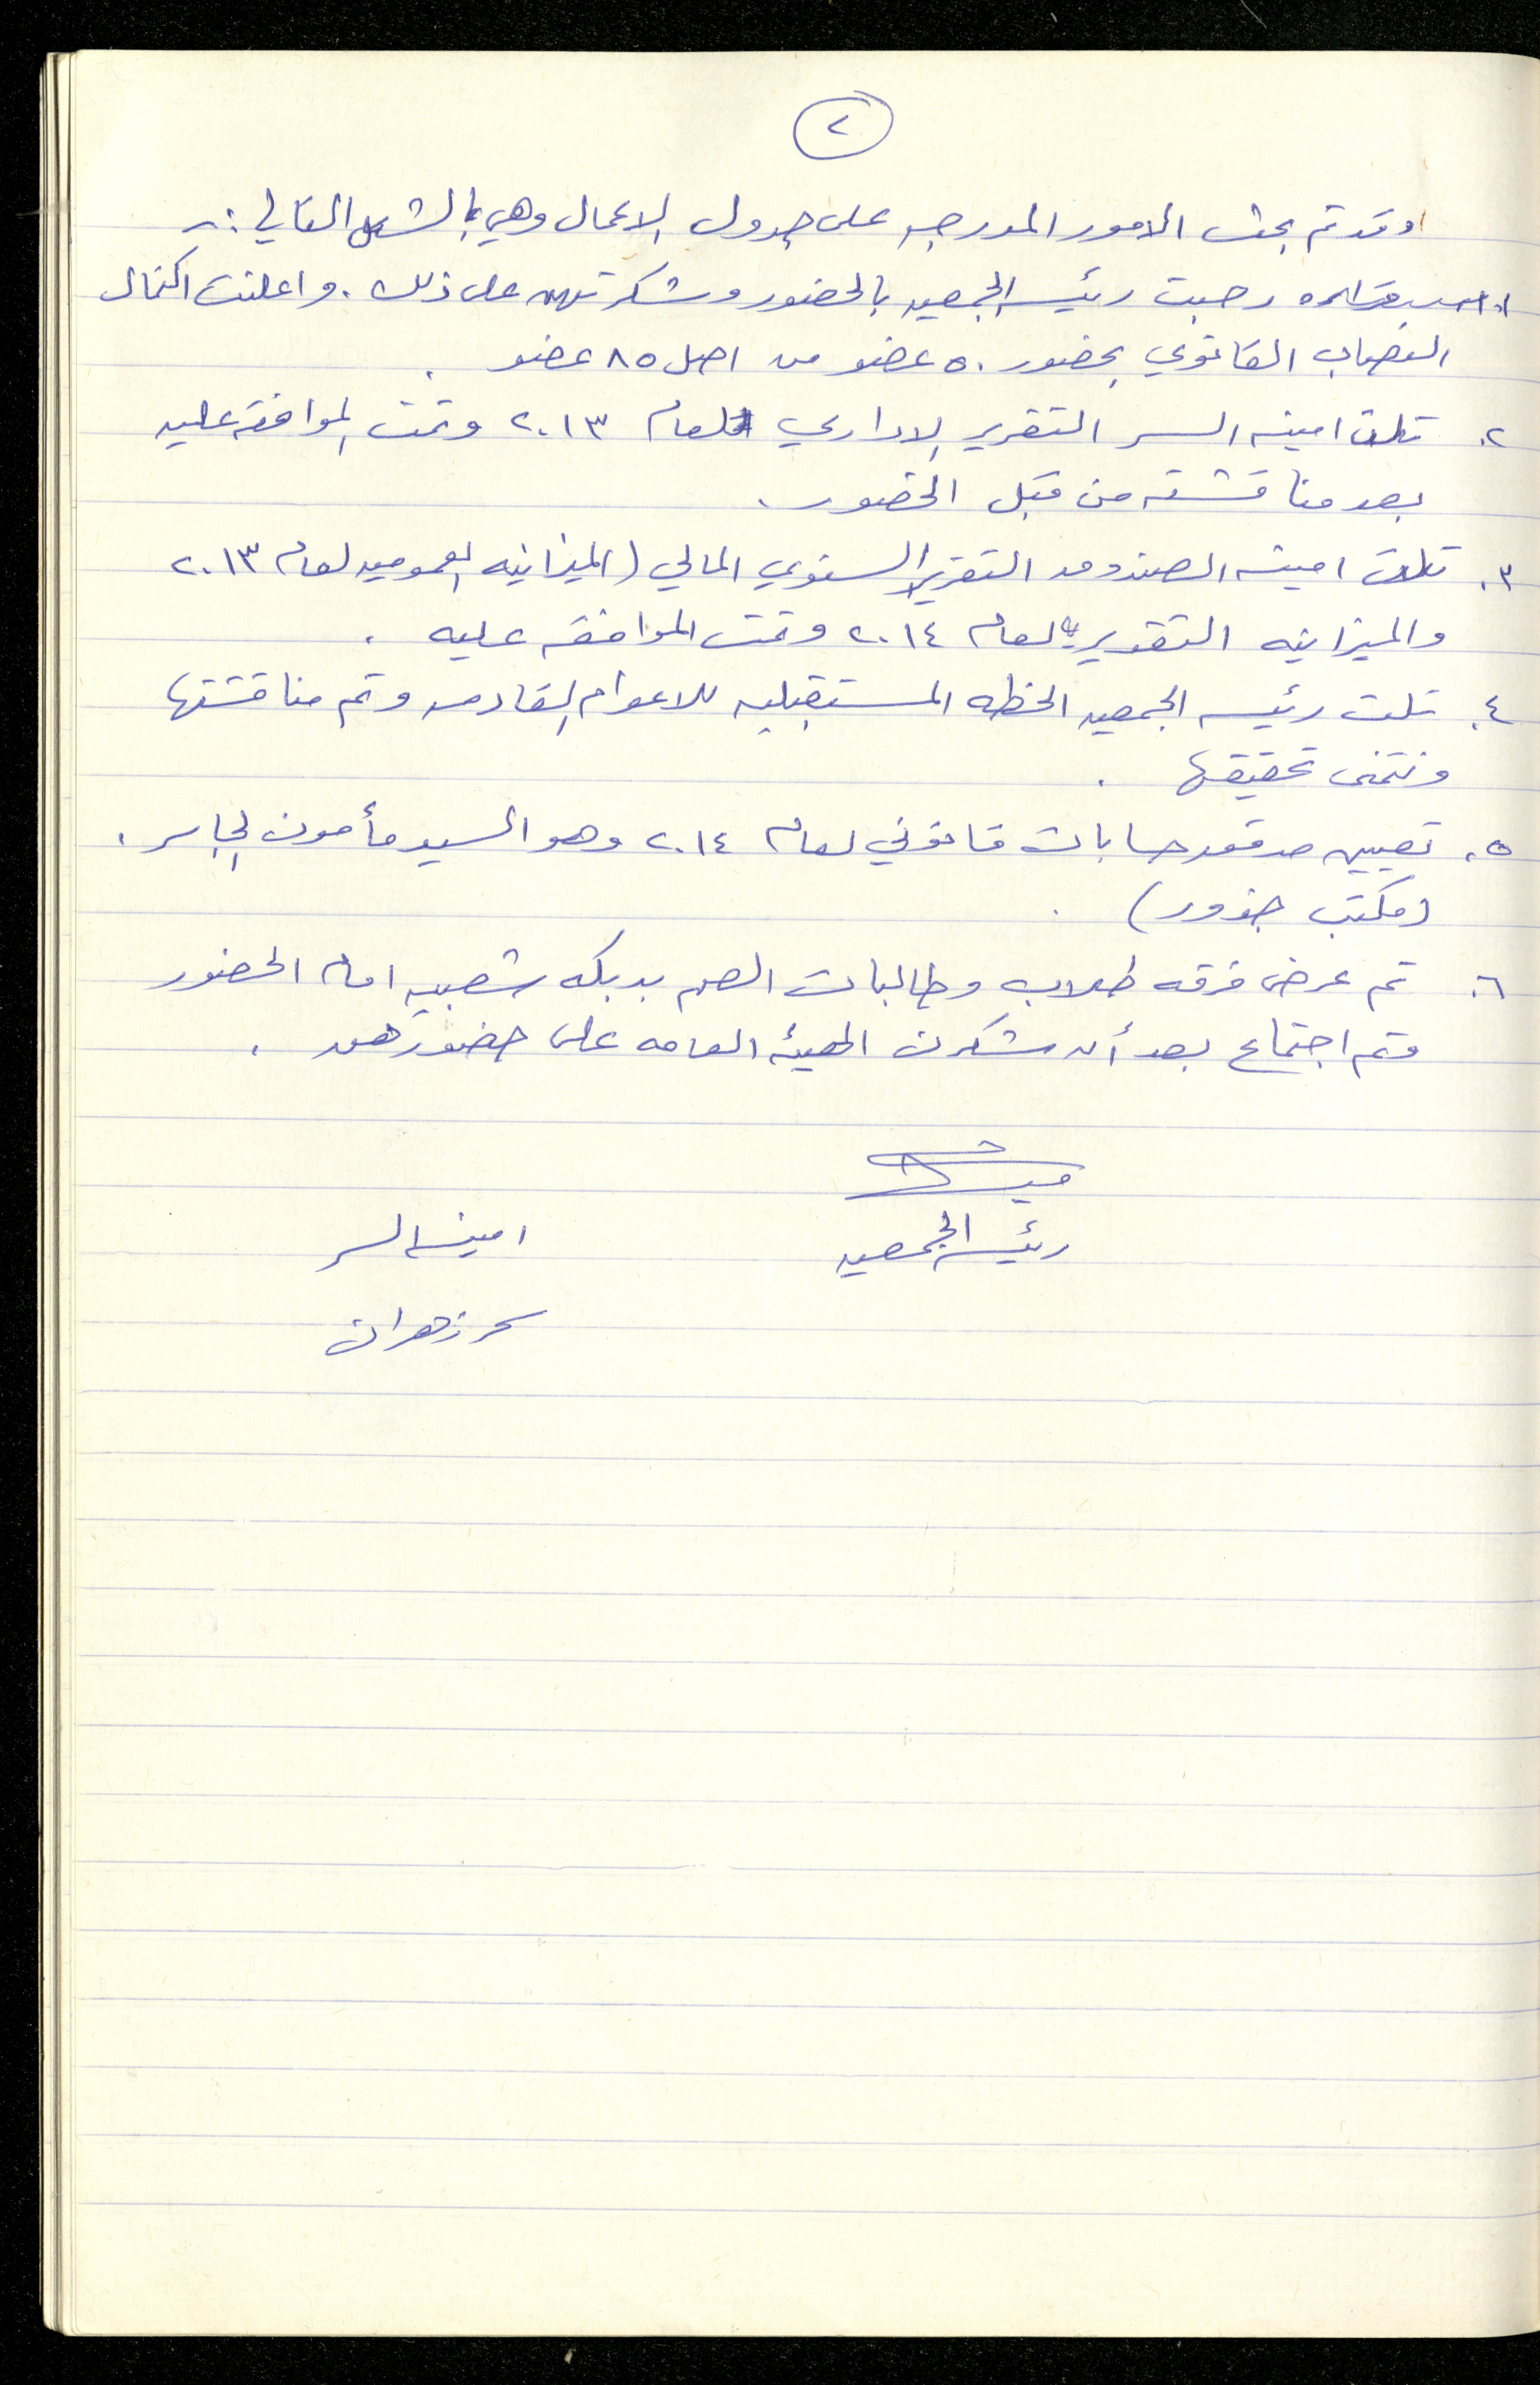 ٢
وقد تم بحث الامور المدرجه على جدول الاعمال وهي بالشكل التالي :-
١. رحبت رئيسه الجمعيه بالحضور وشكرتهن على ذلك . واعلنت اكتمال
النصاب القانوني بحضور ٥٠ عضو من اصل ٨٥ عضو .
٢. تلت امينه السر التقرير الاداري لعام ٢٠١٣ وتمت الموافقه عليه
بعد مناقشته من قبل الحضور .
٣. تلت امينه الصندوق التقرير السنوي المالي ( الميزانيه العموميه لعام ٢٠١٣
والميزانيه التقديريه لعام ٢٠١٤ وتمت الموافقه عليه .
٤. تلت رئيسه الجمعيه الخطه المستقبليه للاعوام القادمه وتم مناقشتها
ونتمنى تحقيقها .
٥. تعيين مدقق حسابات قانوني لعام ٢٠١٤ وهو السيد مأمون الجابر .
(مكتب جذور) .
٦. تم عرض فرقه طلاب وطالبات الصم بدبكه شعبيه امام الحضور
وتم اجتماع بعد أن شكرت الهيئه العامه على حضورهن .
رئيسه الجمعيه
امينه السر
سحر زهران